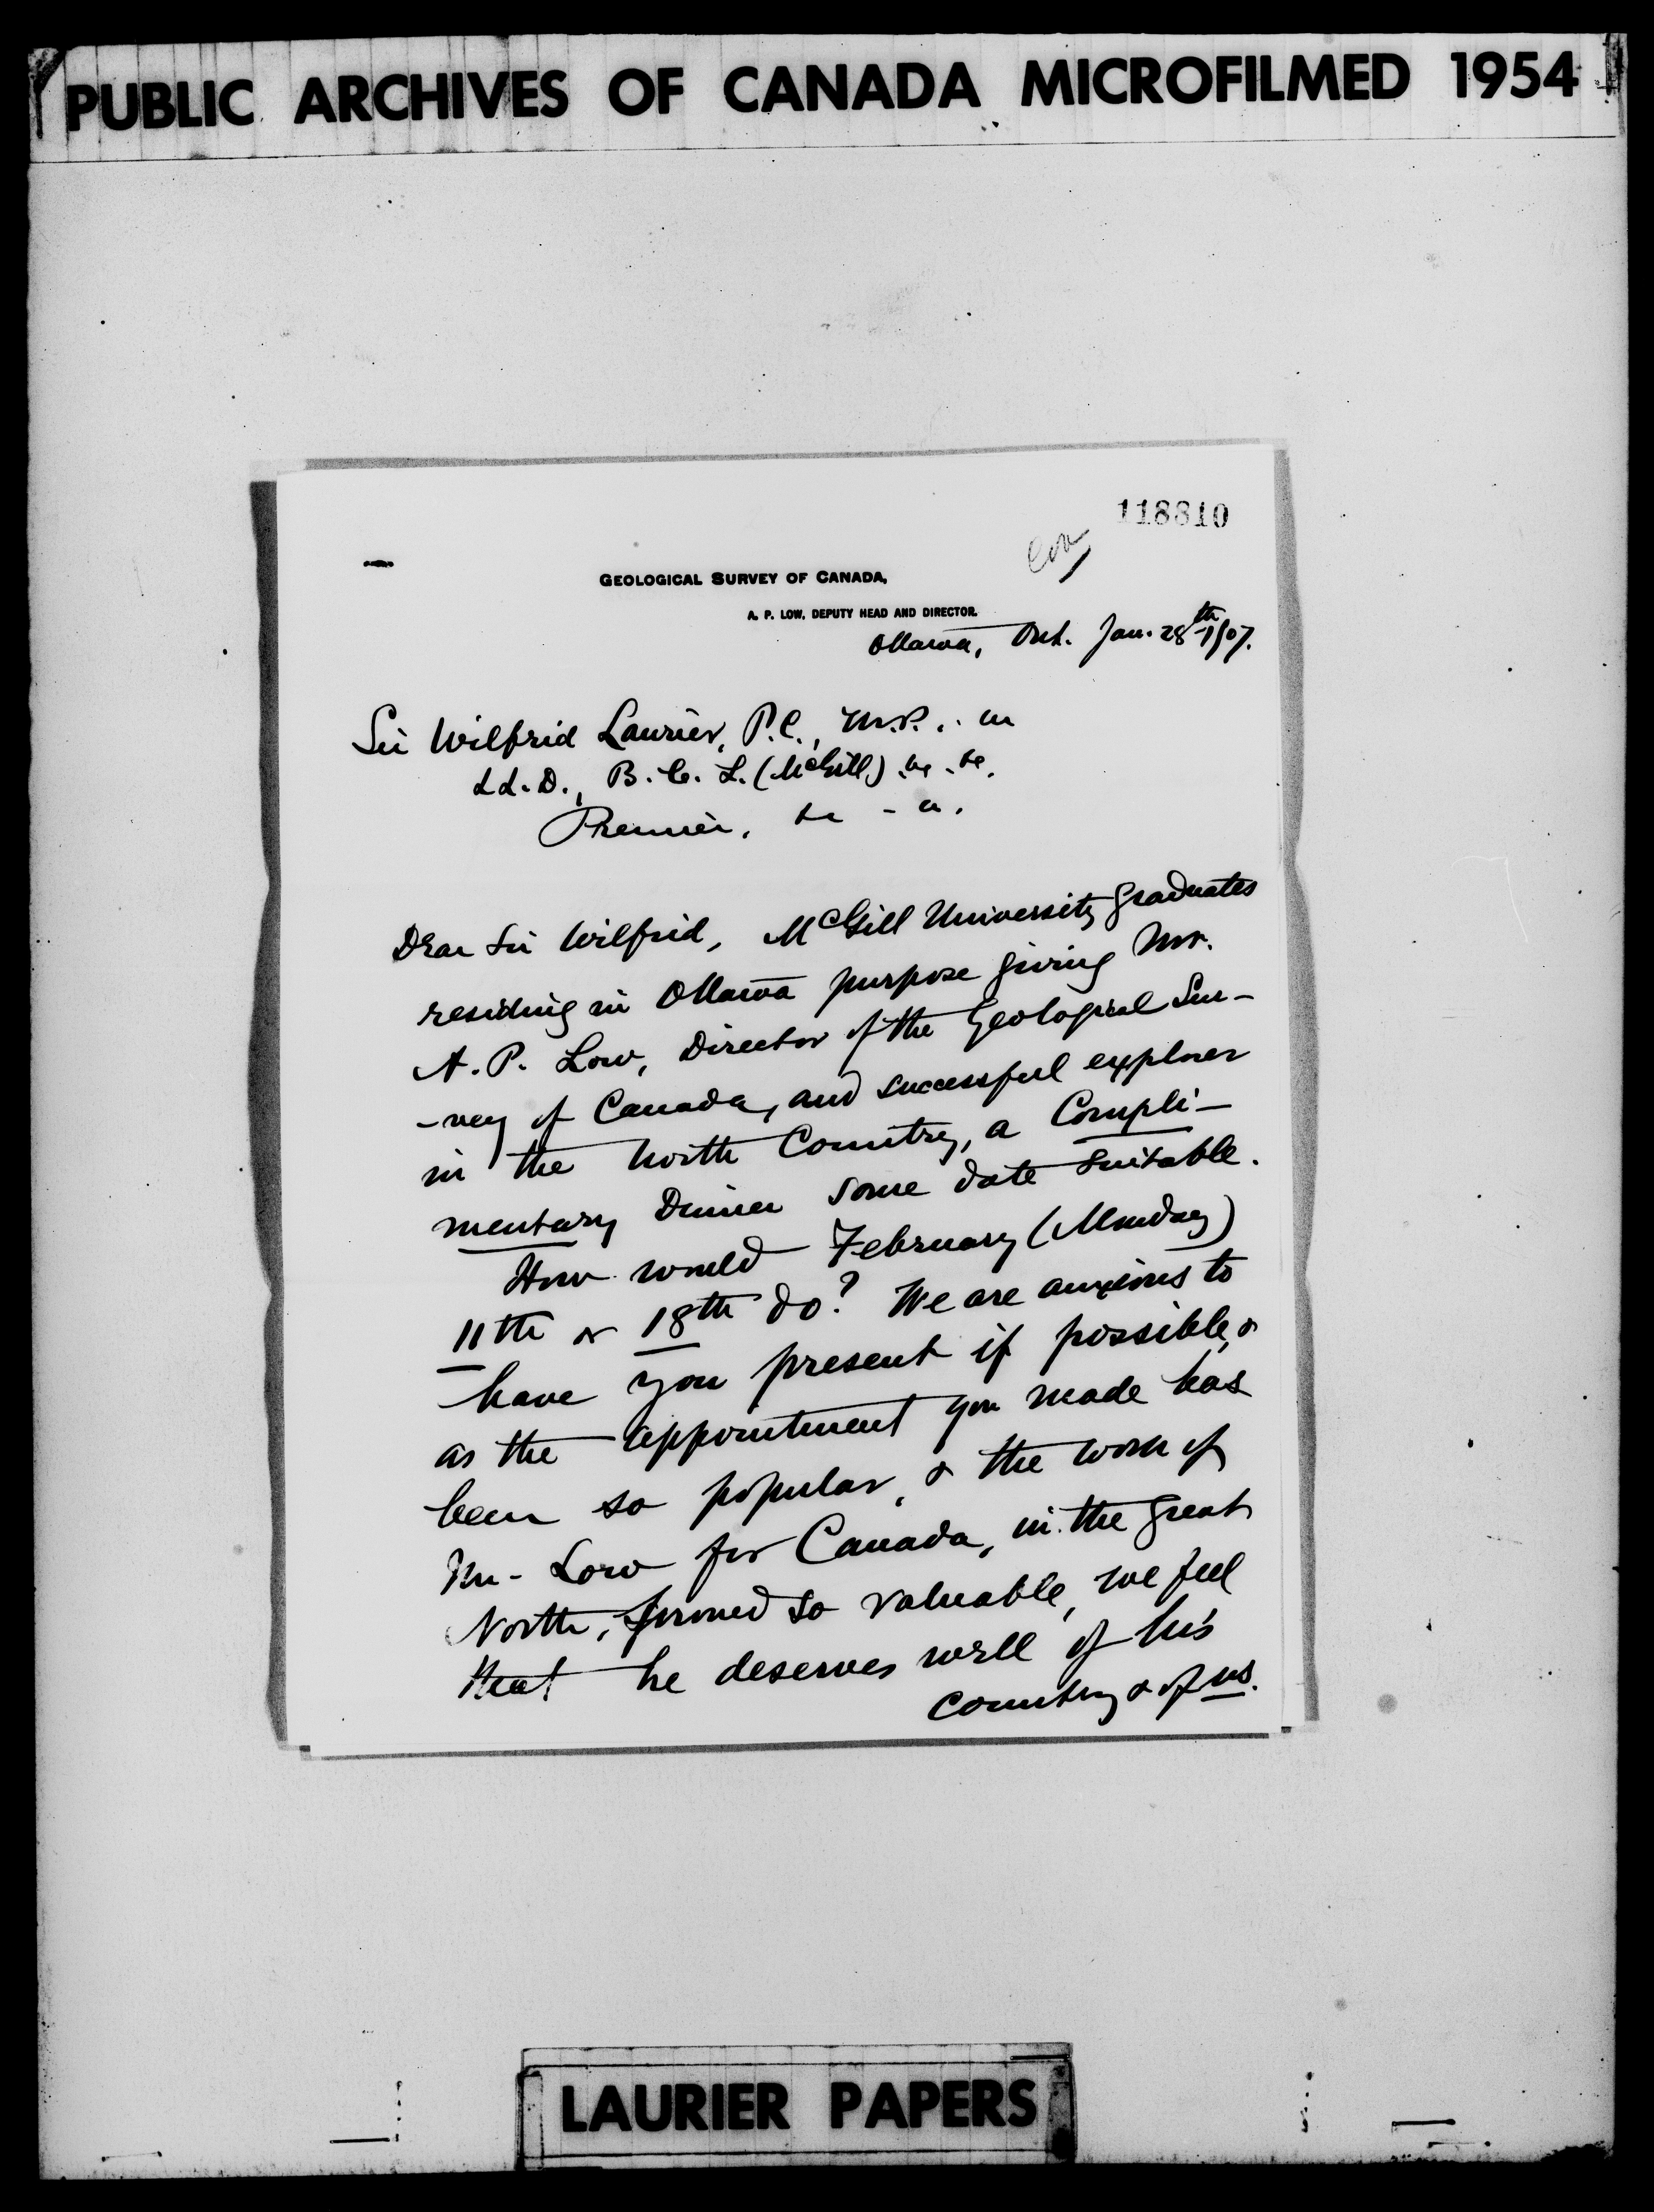 PUBLIC ARCHIVES OF CANADA MICROFILMED 1954
118810
GEOLOGICAL SURVEY OF CANADA,
A. P. LOW, DEPUTY HEAD AND DIRECTOR.
Ottawa, Ont. Jan. 28th 1907.
Sir Wilfrid Laurier, P.C., M.P.,
LL.D., B.C.L. (McGill)
Premier,
Dear Sir Wilfrid, McGill University graduates
residing in Ottawa purpose giving Mr.
A. P. Low, Director of the Geological Sur-
-vey of Canada, and successful explorer
in the North Country, a Compli-
mentary Dinner some date suitable.
How would February (Monday)
11th or 18th do? We are anxious to
have you present if possible, &
as the appointment you made has
been so popular, & the work of
Mr. Low for Canada, in the great
North, so valuable, we feel
that he deserves well of his
country & of us.
LAURIER PAPERS